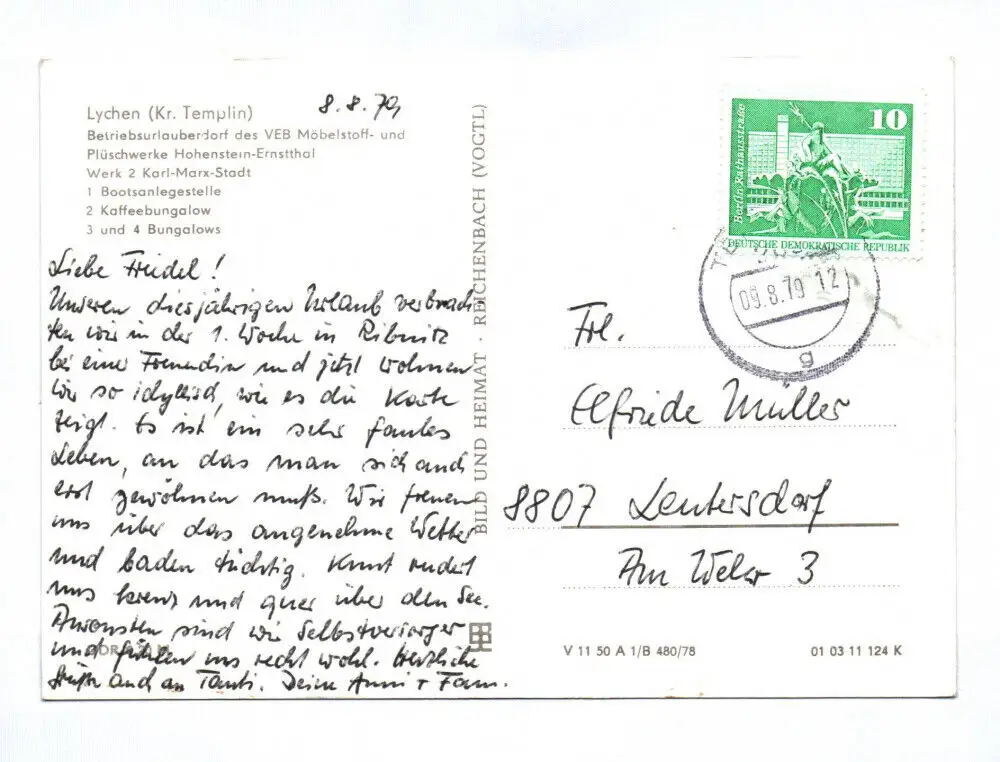 Lychen (Kr. Templin)
8.8.79
Betriebsurlauberdorf des VEB Möbelstoff- und
Plüschwerke Hohenstein-Ernstthal
Werk 2 Karl-Marx-Stadt
1 Bootsanlegestelle
2 Kaffeebungalow
3 und 4 Bungalows
Liebe Friedel!
Unseren diesjährigen Urlaub verbrach-
ten wir in der 1. Woche in Ribnitz
bei einer Freundin und jetzt wohnen
wir so idyllisch, wie es die Karte
zeigt. Es ist ein sehr faules
Leben, an das man sich auch
erst gewöhnen muß. Wir freuen
uns über das angenehme Wetter
und baden tüchtig. Knut rudert
uns kreuz und quer über den See.
Ansonsten sind wir Selbstversorger
und fühlen uns recht wohl. Herzliche
Grüße auch an Tanti. Deine Anni + Fam.
BILD UND HEIMAT · REICHENBACH (VOGTL)
10
Berlin, Rathausstraße
DEUTSCHE DEMOKRATISCHE REPUBLIK
09.8.79 12
g
Frl.
Elfriede Müller
8807 Leutersdorf
Am Weber 3
V 11 50 A 1/B 480/78
01 03 11 124 K